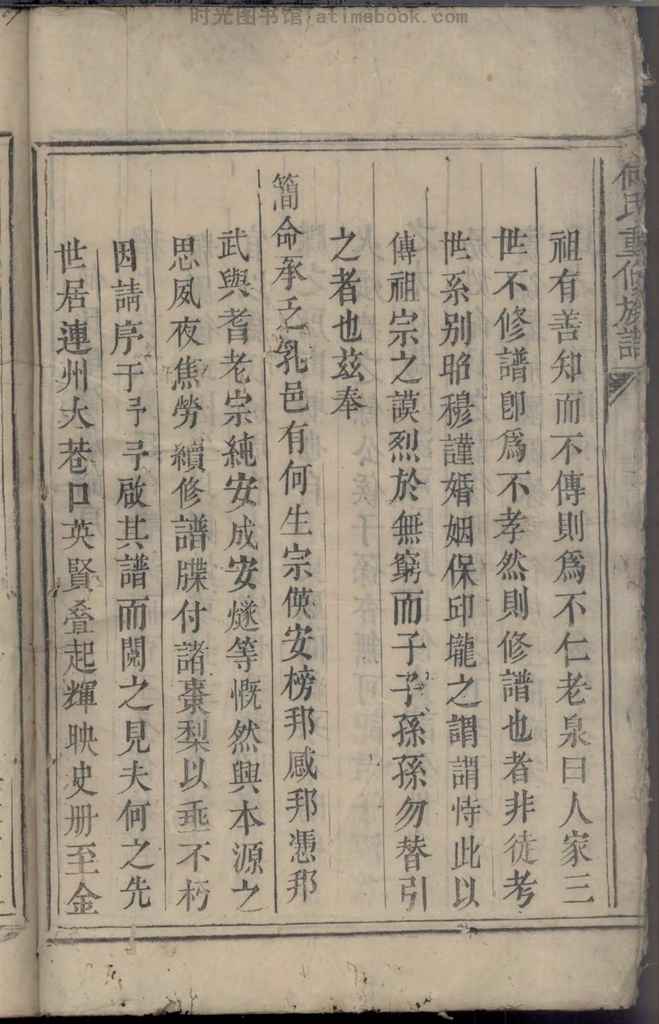 时光图书馆 atimabook.com
何氏重修族譜
祖有善知而不傳則爲不仁老泉曰人家三
世不修譜卽爲不孝然則修譜也者非徒考
世系别昭穆謹婚姻保邱壠之謂謂恃此以
傳祖宗之謨烈於無窮而子子孫孫勿替引
之者也兹奉
簡命承乏乳邑有何生宗偀安榜邦感邦憑邦
武與耆老宗純安成安燧等慨然興本源之
思夙夜焦勞續修譜牒付諸棗梨以垂不朽
因請序于予予啟其譜而閱之見夫何之先
世居連州大巷口英賢叠起輝映史册至金